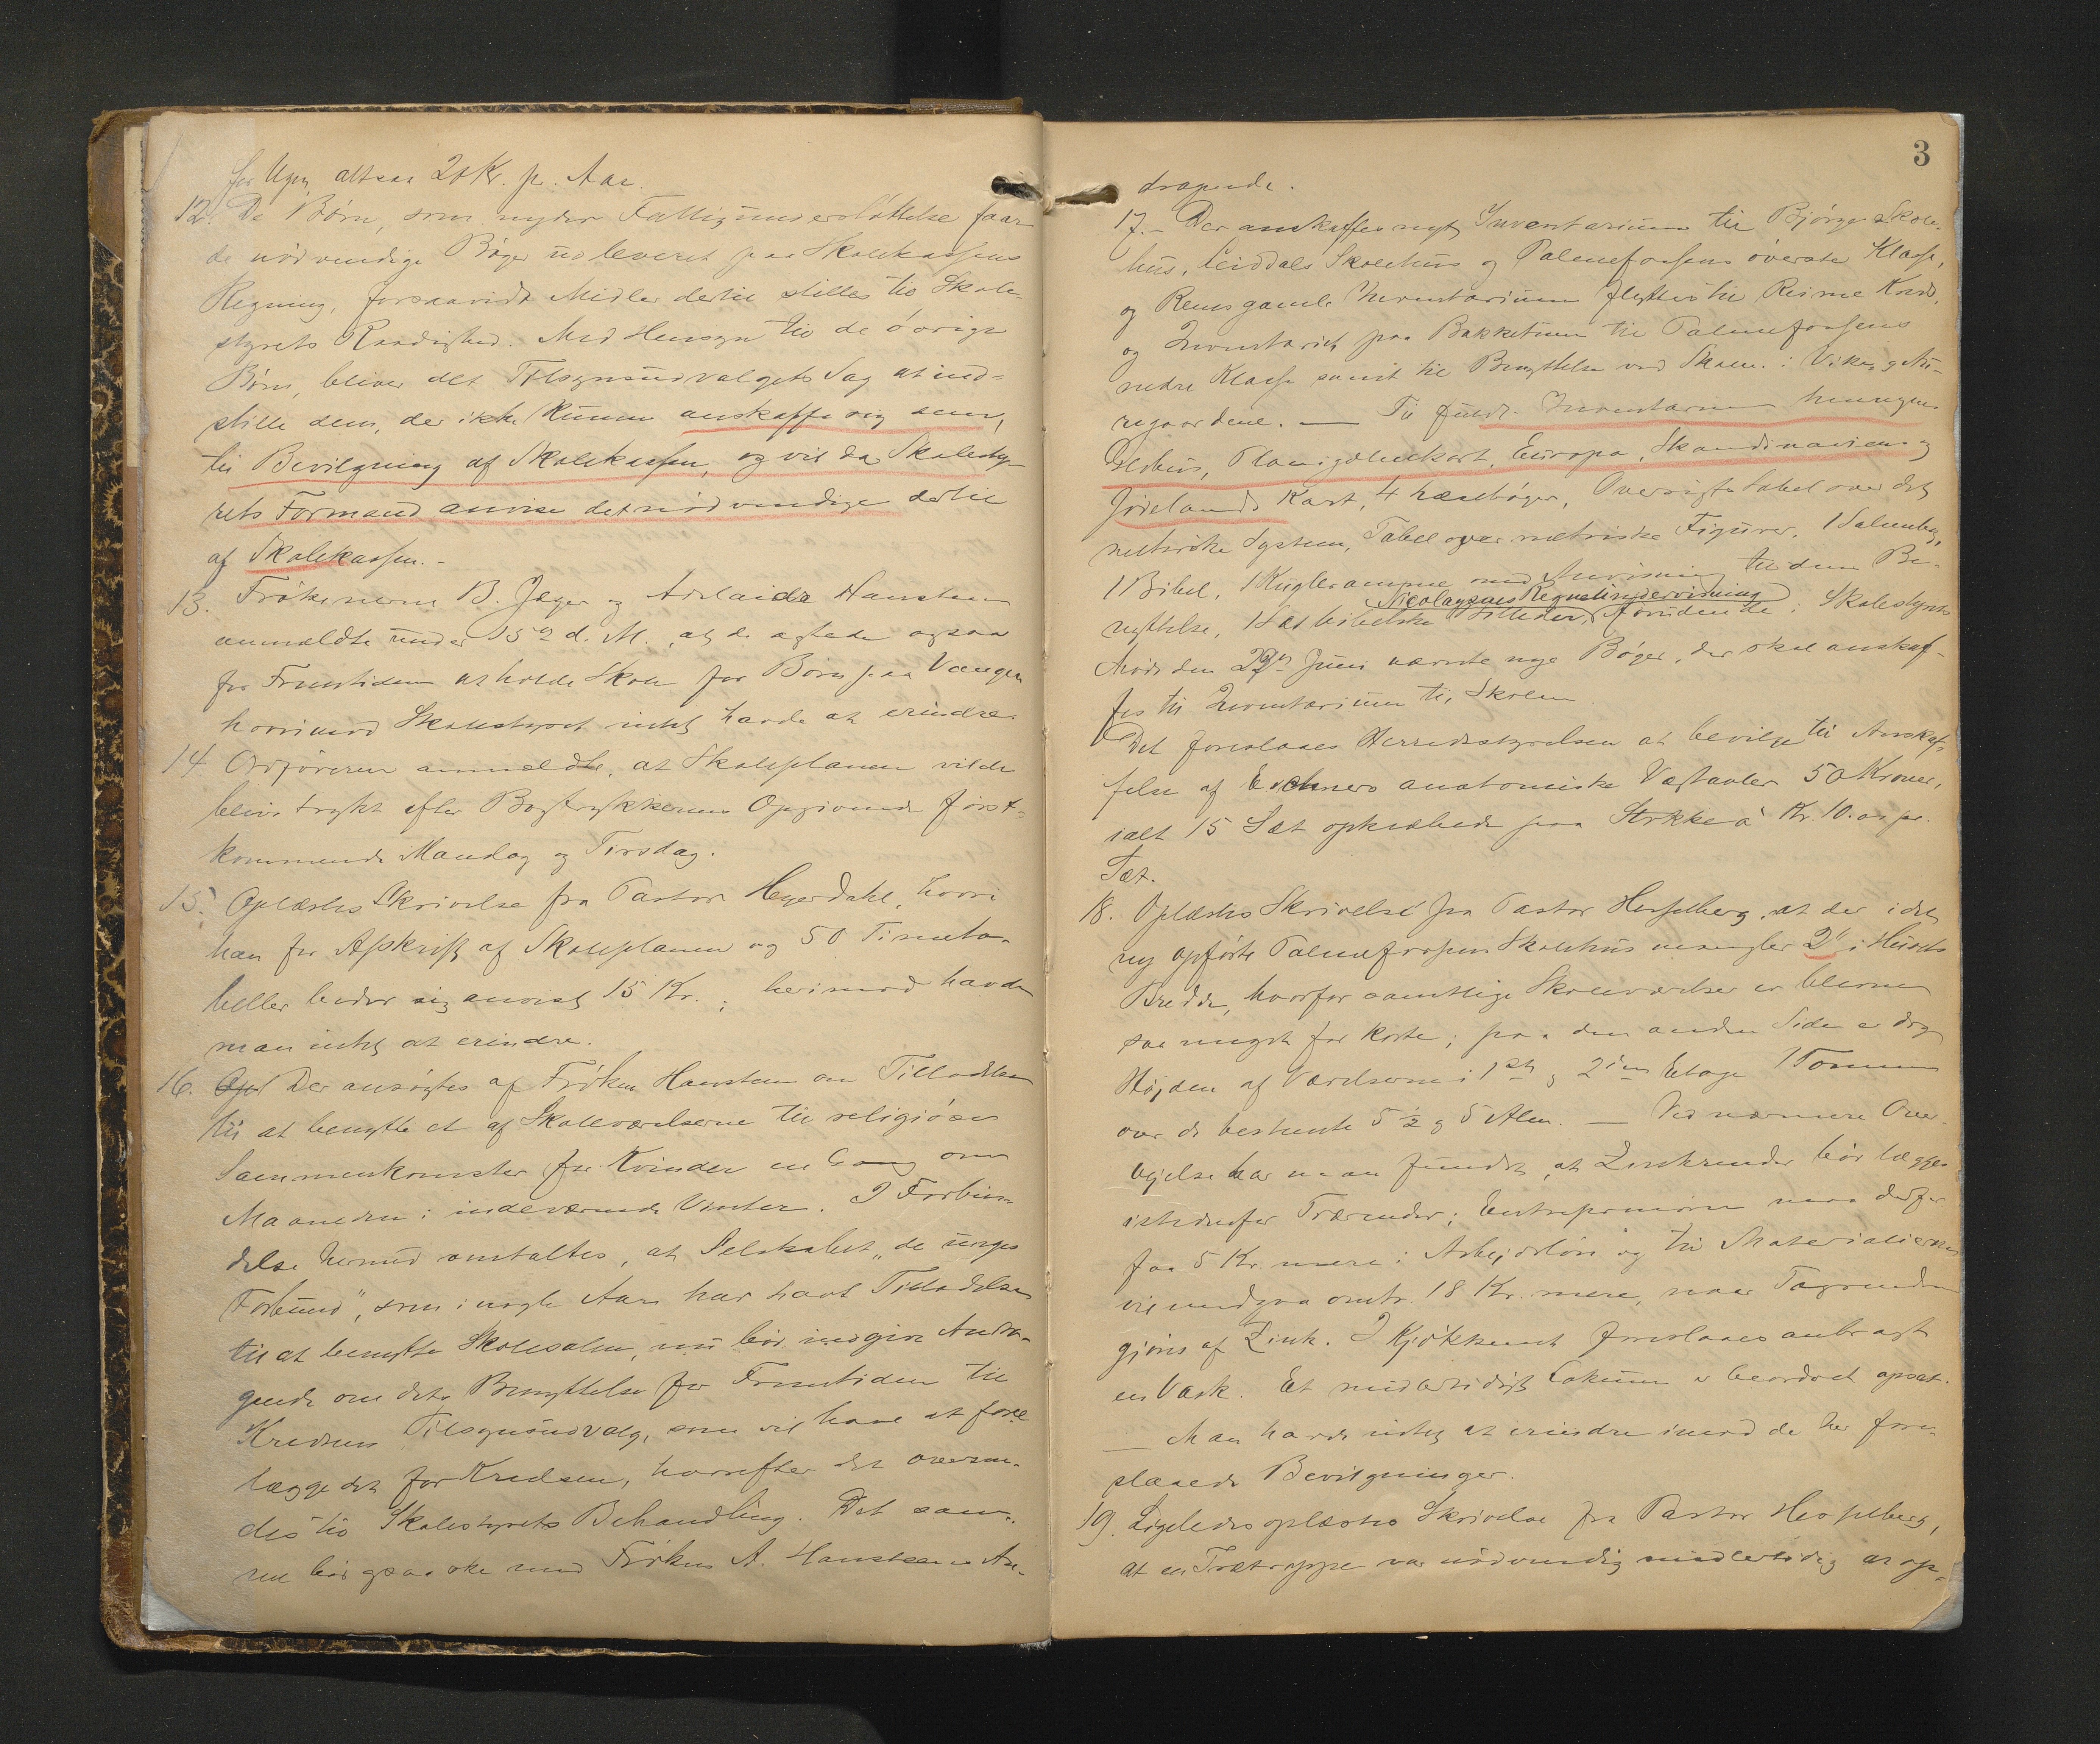 for Ugen, altsaa 20 Kr. pr. Aar.
12. De Børn, som nyder Fattigunderstøttelse faar
de nødvendige Bøger udleveret paa Skolekassens
Regning, forsaavidt Midler dertil stilles til Skole-
styrets Raadighed. Med Hensyn til de øvrige
Børn, bliver det Tilsynsudvalgets Sag at ind-
stille dem, der ikke kunne anskaffe sig sem,
til Bevilgning af Skolekassen, og vil da Skolesty-
rets Formand anvise det nødvendige dertil
af Skolekassen.-
13. Frøknerne B. Jæger og Adelaide Hansteen
anmeldte under 15de d. M., at de agtede ogsaa
for Fremtiden at holde Skole for Børn paa Vangen
hvorimod Skolestyret intet havde at erindre.
14 Ordføreren anmeldte, at Skoleplanen vilde
blive trykt efter Bogtrykkerens Opgivende først-
kommende Mandag og Tirsdag.
15. Oplæstes Skrivelse fra Pastor Heyerdahl, hvori
han for Afskrift af Skoleplanen og 50 Timeta-
beller beder sig anvist 15 Kr.; herimod havde
man intet at erindre.
16. Opl Der ansøgtes af Frøken Hansteen om Tilladelse
til at benytte et af Skoleværelserne til religiøse
Sammenkomster for Kvinder en Gang om
Maaneden i indeværende Vinter. I Forbin-
delse hermed omtaltes, at Selskabet „de unges
Forbund", som i nogle Aar har havt Tilladelse
til at benytte Skolesalen, nu bør indgive Andra-
gende om dets Benyttelse for Fremtiden til
Kredsens Tilsynsudvalg, som vil have at fore
lægge det for Kredsen, hvorefter det oversen-
des til Skolestyrets Behandling. Det sam-
me bør ogsaa ske med Frøken A. Hansteens An-
3
dragende.
17.- Der anskaffes nyt Inventarium til Bjørge Skole-
hus, Leiddals Skolehus og Palmefossens øverste Klasse,
og Rems gamle Inventarium flyttes til Reime Kreds,
og Inventariet paa Bakketun til Palmefossens
nedre Klasse samt til Benyttelse ved Skolen i Viken
regaardene. — Til fuldt Inventarium henregnes
Globus, Planigolbkart, Europa, Skandinaviens og
Jødelands Kart, 4 Læsebøger, Oversigtstabel over det
metriske System, Tabel over metriske Figurer, 1 Salmebog,
1 Bibel, 1 Kugleramme med Anvisning til dens Be-
Nicolaysens Regneundervisning
nyttelse, 1 Sæt bibelske Billeder, foruden de i Skolestyrets
Møde den 23de Juni nævnte nye Bøger, der skal anskaf-
fes til Inventarium til Skolen
Det foreslaaes Herredsstyrelsen at bevilge til Anskaf-
felse af Eschners anatomiske Vægtavler 50 Kroner,
ialt 15 Sæt opklæbede paa Stykke à Kr. 10.00 pr.
Sæt.
18. Oplæstes Skrivelse fra Pastor Hesselberg, at der i det
ny opførte Palmefossen Skolehus mangler 2" i Husets
Bredde, hvorfor samtlige Skoleværelser er blevne
saa meget for korte; paa den anden Side er dog
Højden af Værelserne i 1ste og 2den Etage 1 Tomme
over de bestemte 5½ og 5 Alen. — Ved nærmere Over-
vejelse har man fundet, at Zinkrender bør lægges
istedenfor Trærender; Entreprenøren maa derfor
faa 5 Kr. mere i Arbejdsløn og til Materialierne
vil medgaa omtr. 18 Kr. mere, naar Tagrenden
gjøres af Zink. I Kjøkkenet foreslaaes anbragt
en Vask. Et midlertidigt Lokum er beordret opsat.
— Man havde intet at erindre imod de her fore-
slaaede Bevilgninger.
19. Ligeledes oplæstes Skrivelse fra Pastor Hesselberg,
at en Trætrappe var nødvendig midlertidig at op-